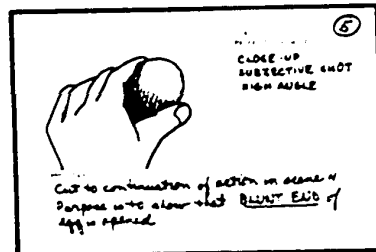 5
CLOSE-UP
SUBJECTIVE SHOT
HIGH ANGLE
Cut to continuation of action in scene 4
Purpose is to show that BLUNT END of
egg is opened